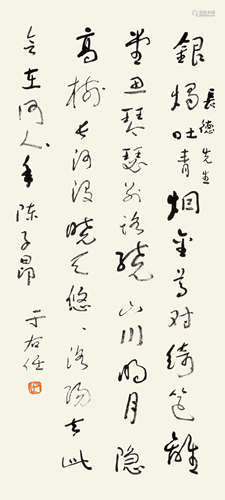 長德先生
銀燭吐青烟金尊对綺筵離
堂思琴瑟别路繞山川明月隐
高樹长河没曉天悠悠洛陽去此
会在何年 陈子昂
于右任